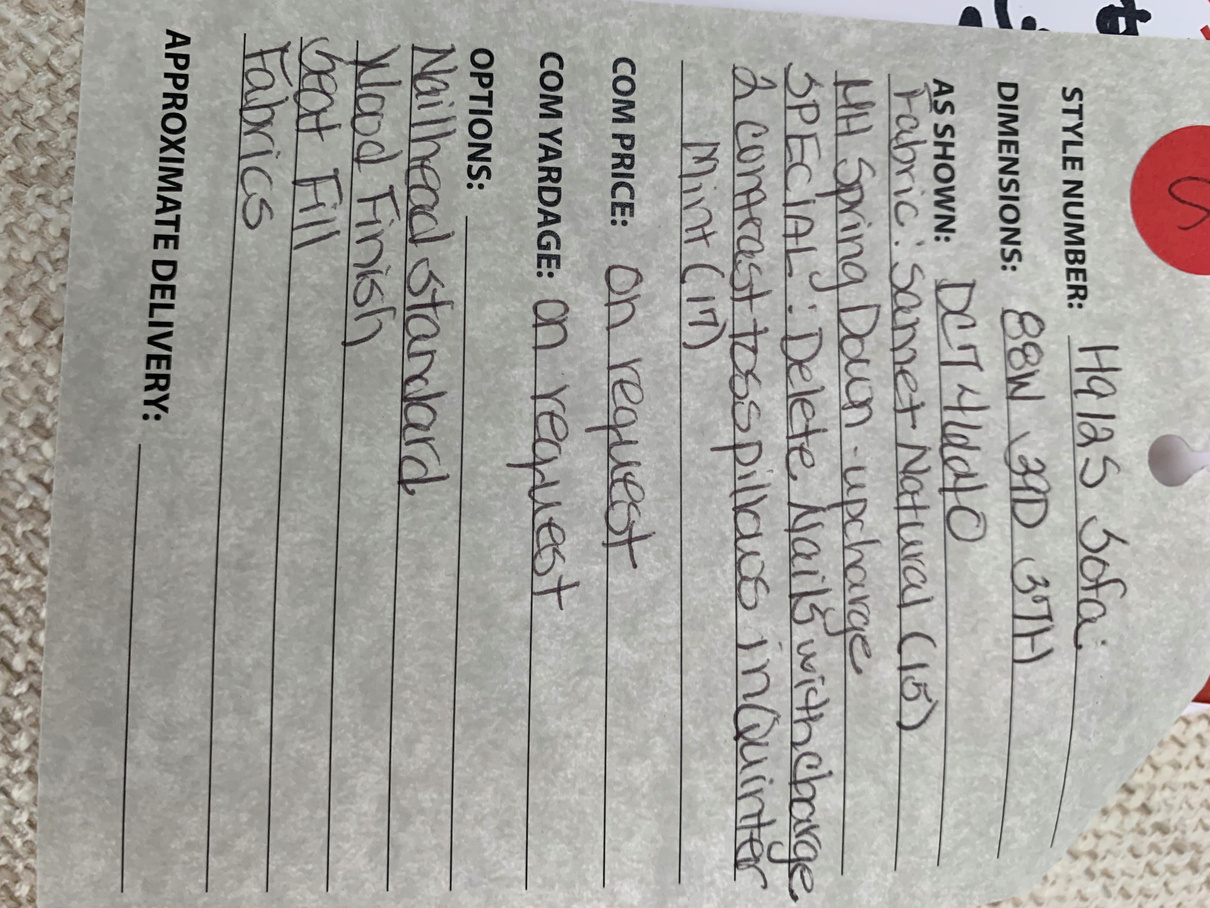 STYLE NUMBER: H9125 Sofa
DIMENSIONS: 88W 39D 37H
AS SHOWN:
Fabric: Sannet Natural (15)
MH Spring Down - upcharge
SPECIAL: Delete Nails with charge
2 contrast toss pillows in Quinter
Mint (17)
COM PRICE: On request
COM YARDAGE: On request
OPTIONS:
Nailhead standard
Wood Finish
Seat Fill
Fabrics
APPROXIMATE DELIVERY: